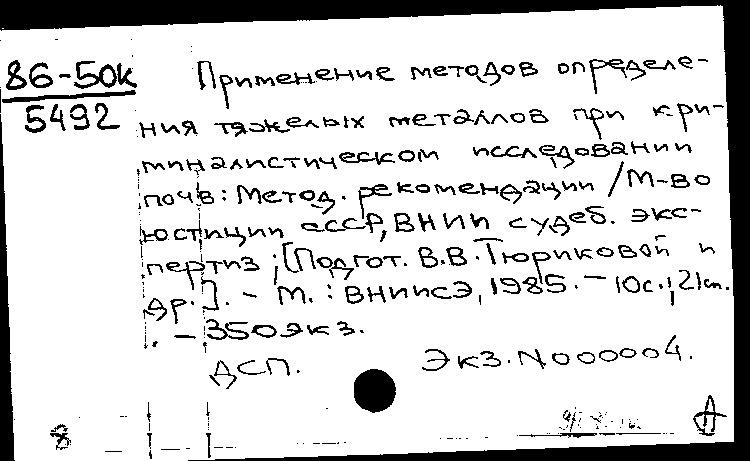 86-50к
5492
Применение методов определе-
ния тяжелых металлов при кри-
миналистическом исследовании
почв: Метод. рекомендации / М-во
юстиции СССР, ВНИИ судеб. экс-
пертиз; [Подгот. В.В. Тюриковой и
др.]. - М.: ВНИИСЭ, 1985. - 10с.; 21см.
. - 350экз.
ДСП. Экз. N000004.
8
А